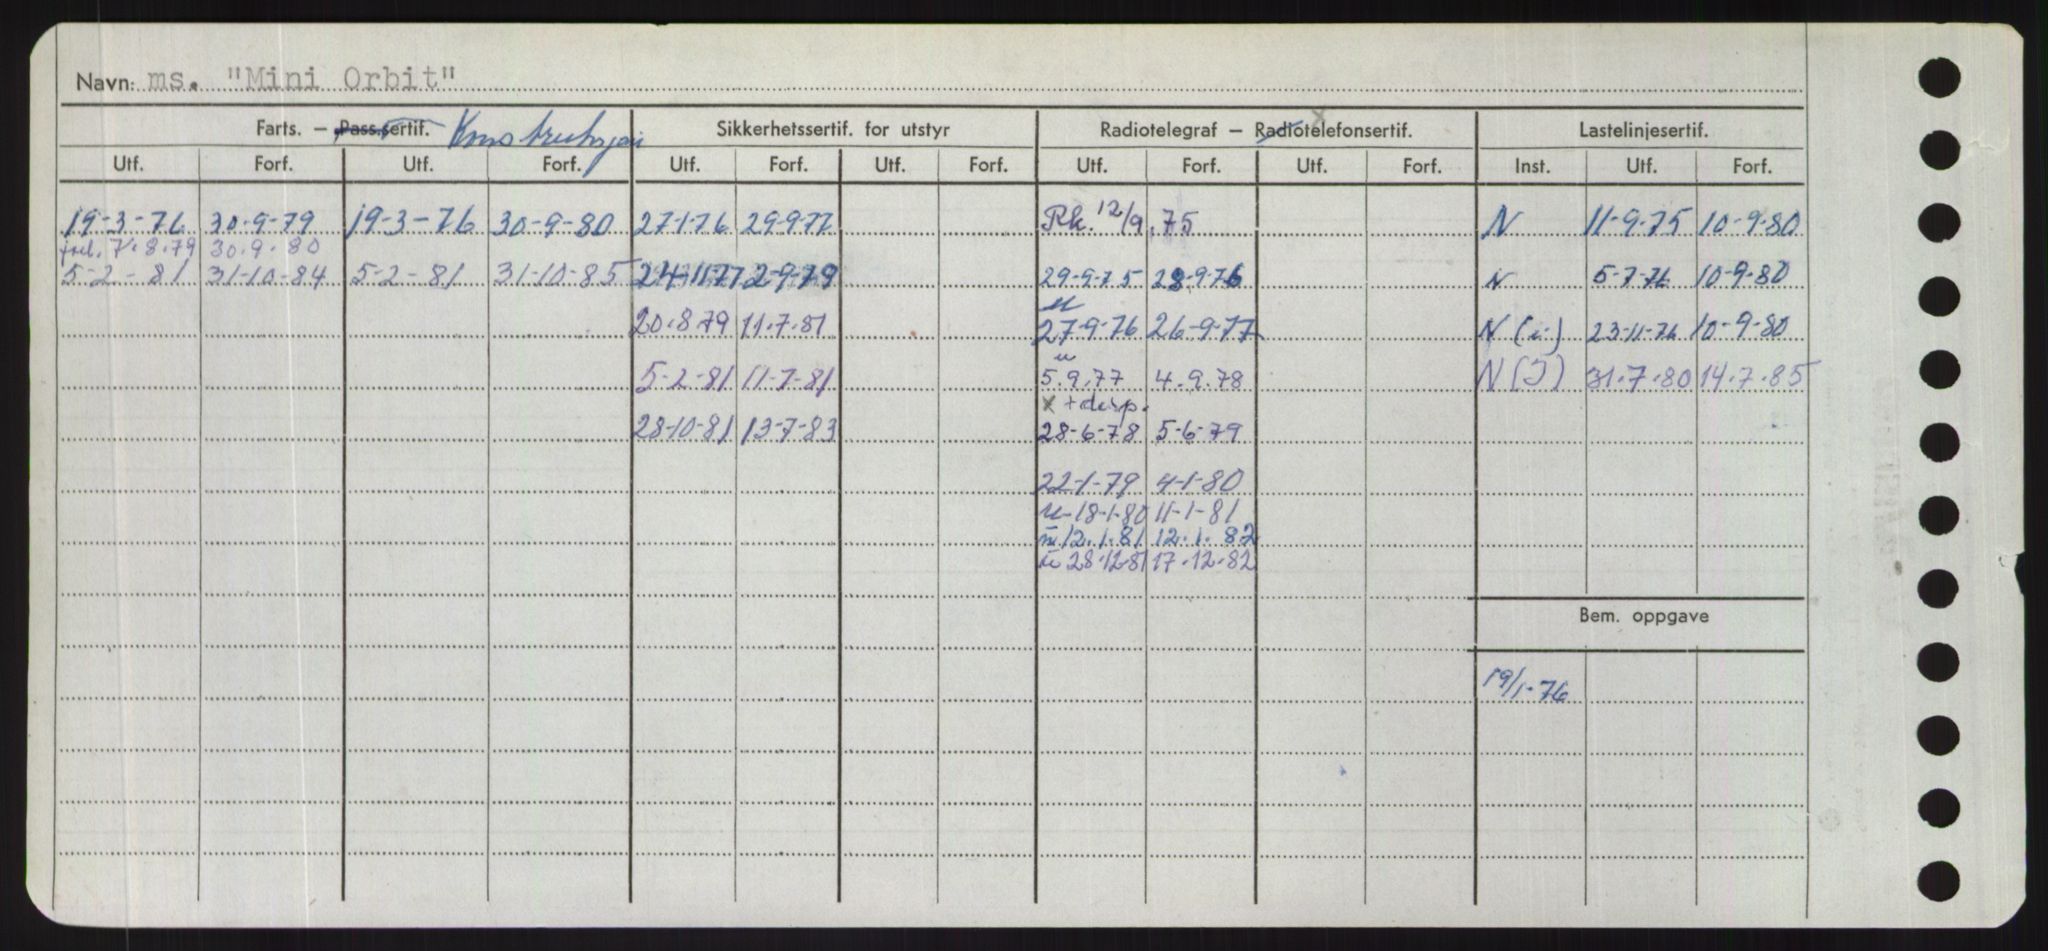 Navn: ms. "Mini Orbit"
Farts. — Pass.sertif. Konstruksjon Sikkerhetssertif. for utstyr Radiotelegraf — Radiotelefonsertif. x Lastelinjesertif.
Utf. Forf. Utf. Forf. Utf. Forf. Utf. Forf. Utf. Forf. Utf. Forf. Inst. Utf. Forf.
19-3-76 30-9-79 19-3-76 30-9-80 27-1-76 29-9-77 Rk. 12/9.75 N 11-9-75 10-9-80
7.8.79 30.9.80
5-2-81 31-10-84 5-2-81 31-10-85 24-11-77 2-9-79 29-9-75 28-9-76 N 5-7-76 10-9-80
u
20.8.79 11.7.81 27-9-76 26-9-77 N (i) 23-11-76 10-9-80
u
5-2-81 11-7-81 5.9.77 4.9.78 N (I) 31.7.80 14.7.85
x + disp.
28-10-81 13-7-83 28-6-78 5-6-79
22-1-79 4-1-80
u 18-1-80 11-1-81
u 12.1.81 12.1.82
u 28.12.81 17.12.82
Bem. oppgave
19/1-76